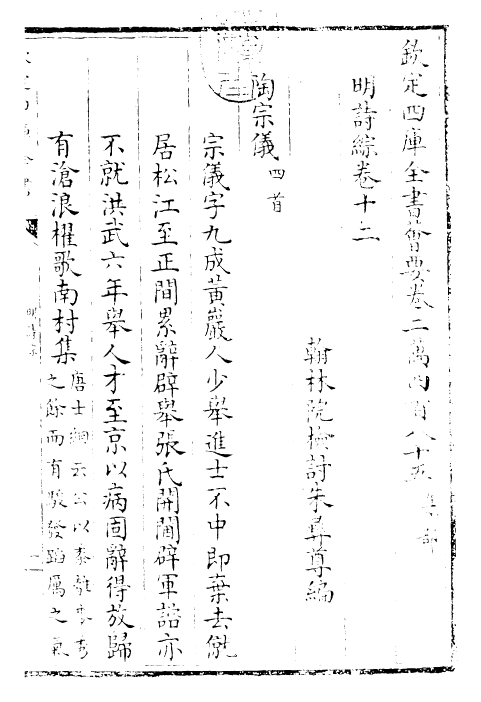 欽定四庫全書會要卷二萬四百八十五 集部
明詩綜卷十二
翰林院檢討朱彝尊編
陶宗儀 四首
宗儀字九成黃巖人少舉進士不中即棄去僦
居松江至正間累辭辟舉張氏開閫辟軍諮亦
不就洪武六年舉人才至京以病固辭得放歸
有滄浪櫂歌南村集
唐士綱云公以黍離麥秀
之餘而有駿發蹈厲之氣